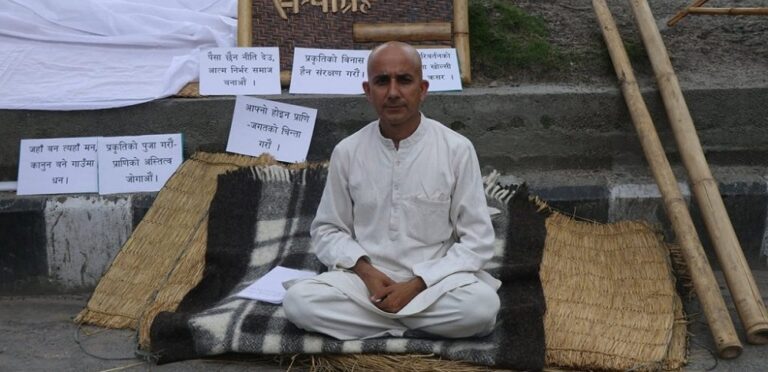 सत्याग्रह
पैसा छैन नीति देउ,
आत्म निर्भर समाज
बनाऔं ।
प्रकृतिको बिनास
हैन संरक्षण गरौं ।
कसर ।
आफ्नो होइन प्राणि
-जगतको चिन्ता
गरौं ।
जहाँ बन त्यहाँ मन,
कानुन बने गाउँमा
धन ।
प्रकृतिको पुजा गरौं-
प्राणिको अस्तित्व
जोगाऔं ।